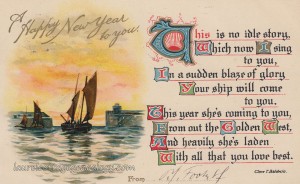 A
Happy New Year
to you.
This is no idle story,
Which now I sing
to you,
In a sudden blaze of glory
Your ship will come
to you,
This year she's coming to you,
From out the Golden West,
And heavily she's laden
With all that you love best.
From